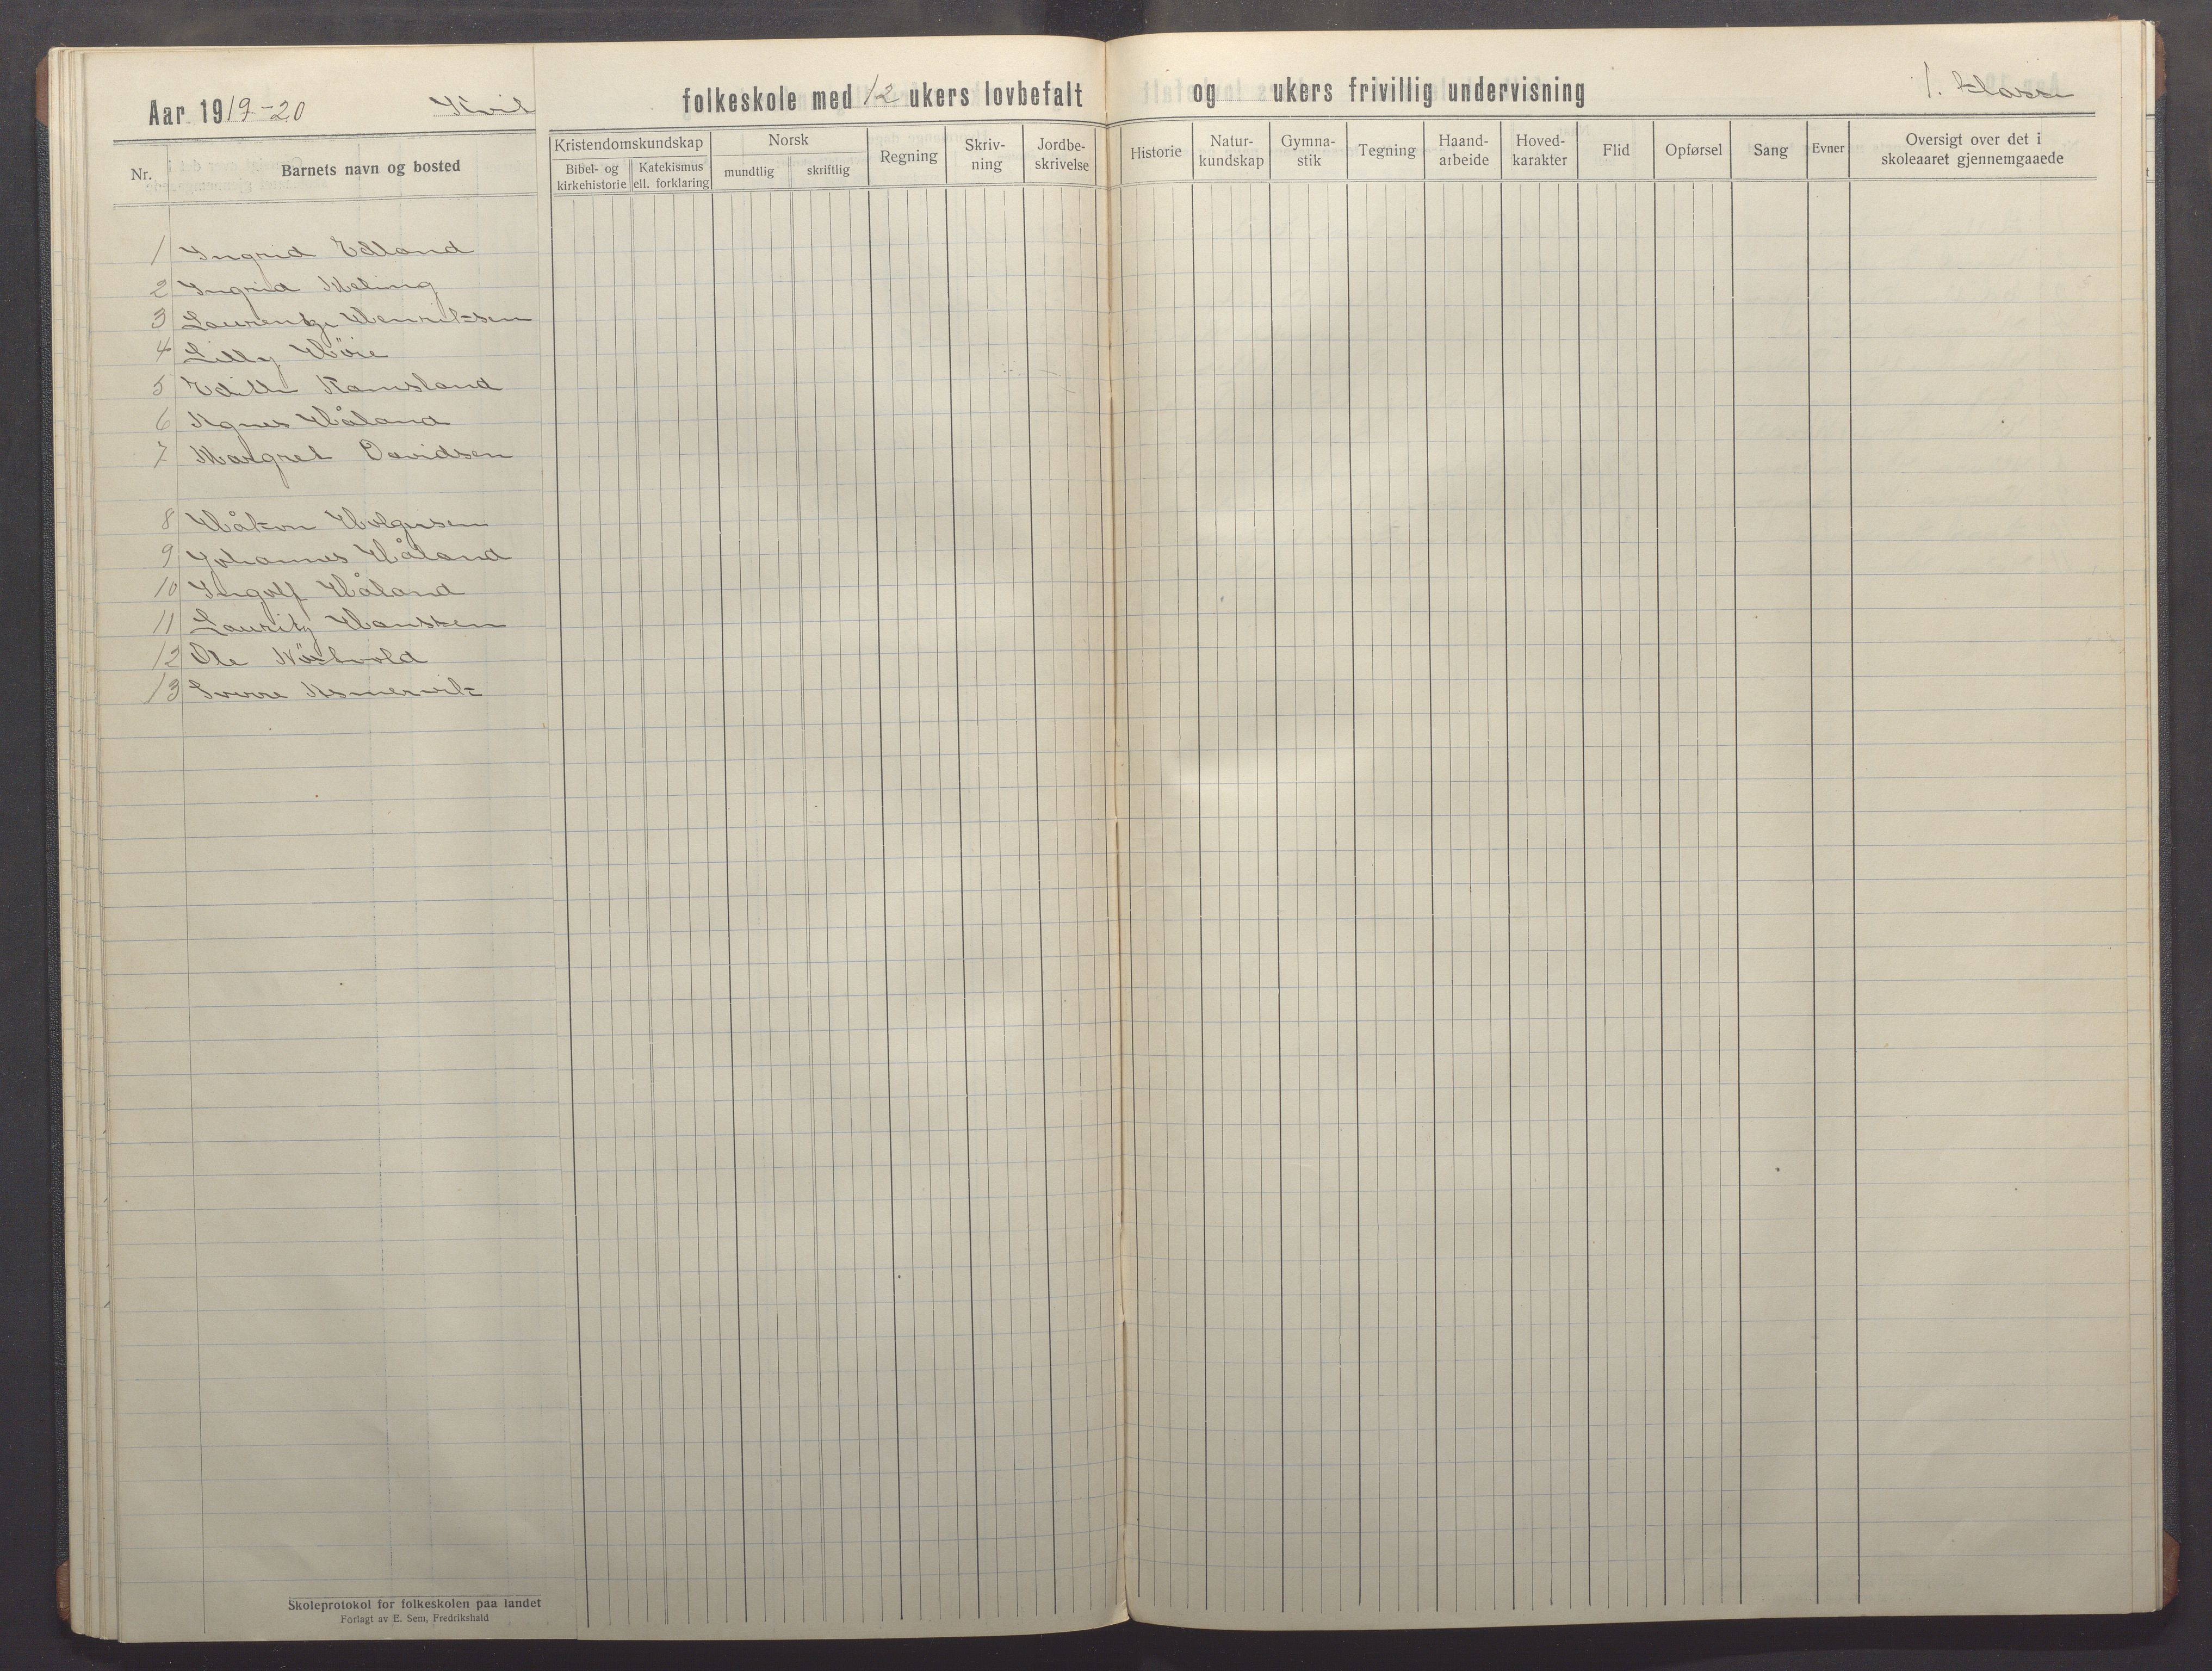 Aar 1919-20 Kvil folkeskole med 12 ukers lovbefalt og ukers frivillig undervisning 1. klasse
Nr. Barnets navn og bosted Kristendomskundskap Bibel- og kirkehistorie Katekismus ell. forklaring Norsk mundtlig skriftlig Regning Skriv-ning Jordbe-skrivelse Historie Natur-kundskap Gymna-stik Tegning Haand-arbeide Hoved-karakter Flid Opførsel Sang Evner Oversigt over det i skoleaaret gjennemgaaede
1 Ingrid Edland
2 Ingrid Meling
3 Laurentze Henriksen
4 Lilly Höie
5 Edith Ramsland
6 Agnes Håland
7 Margret Davidsen
8 Håkon Holgersen
9 Johannes Håland
10 Ingolf Håland
11 Lauritz Hansken
12 Ole
13 Sverre Asmervik
Skoleprotokol for folkeskolen paa landet
Forlagt av E. Sem, Fredrikshald